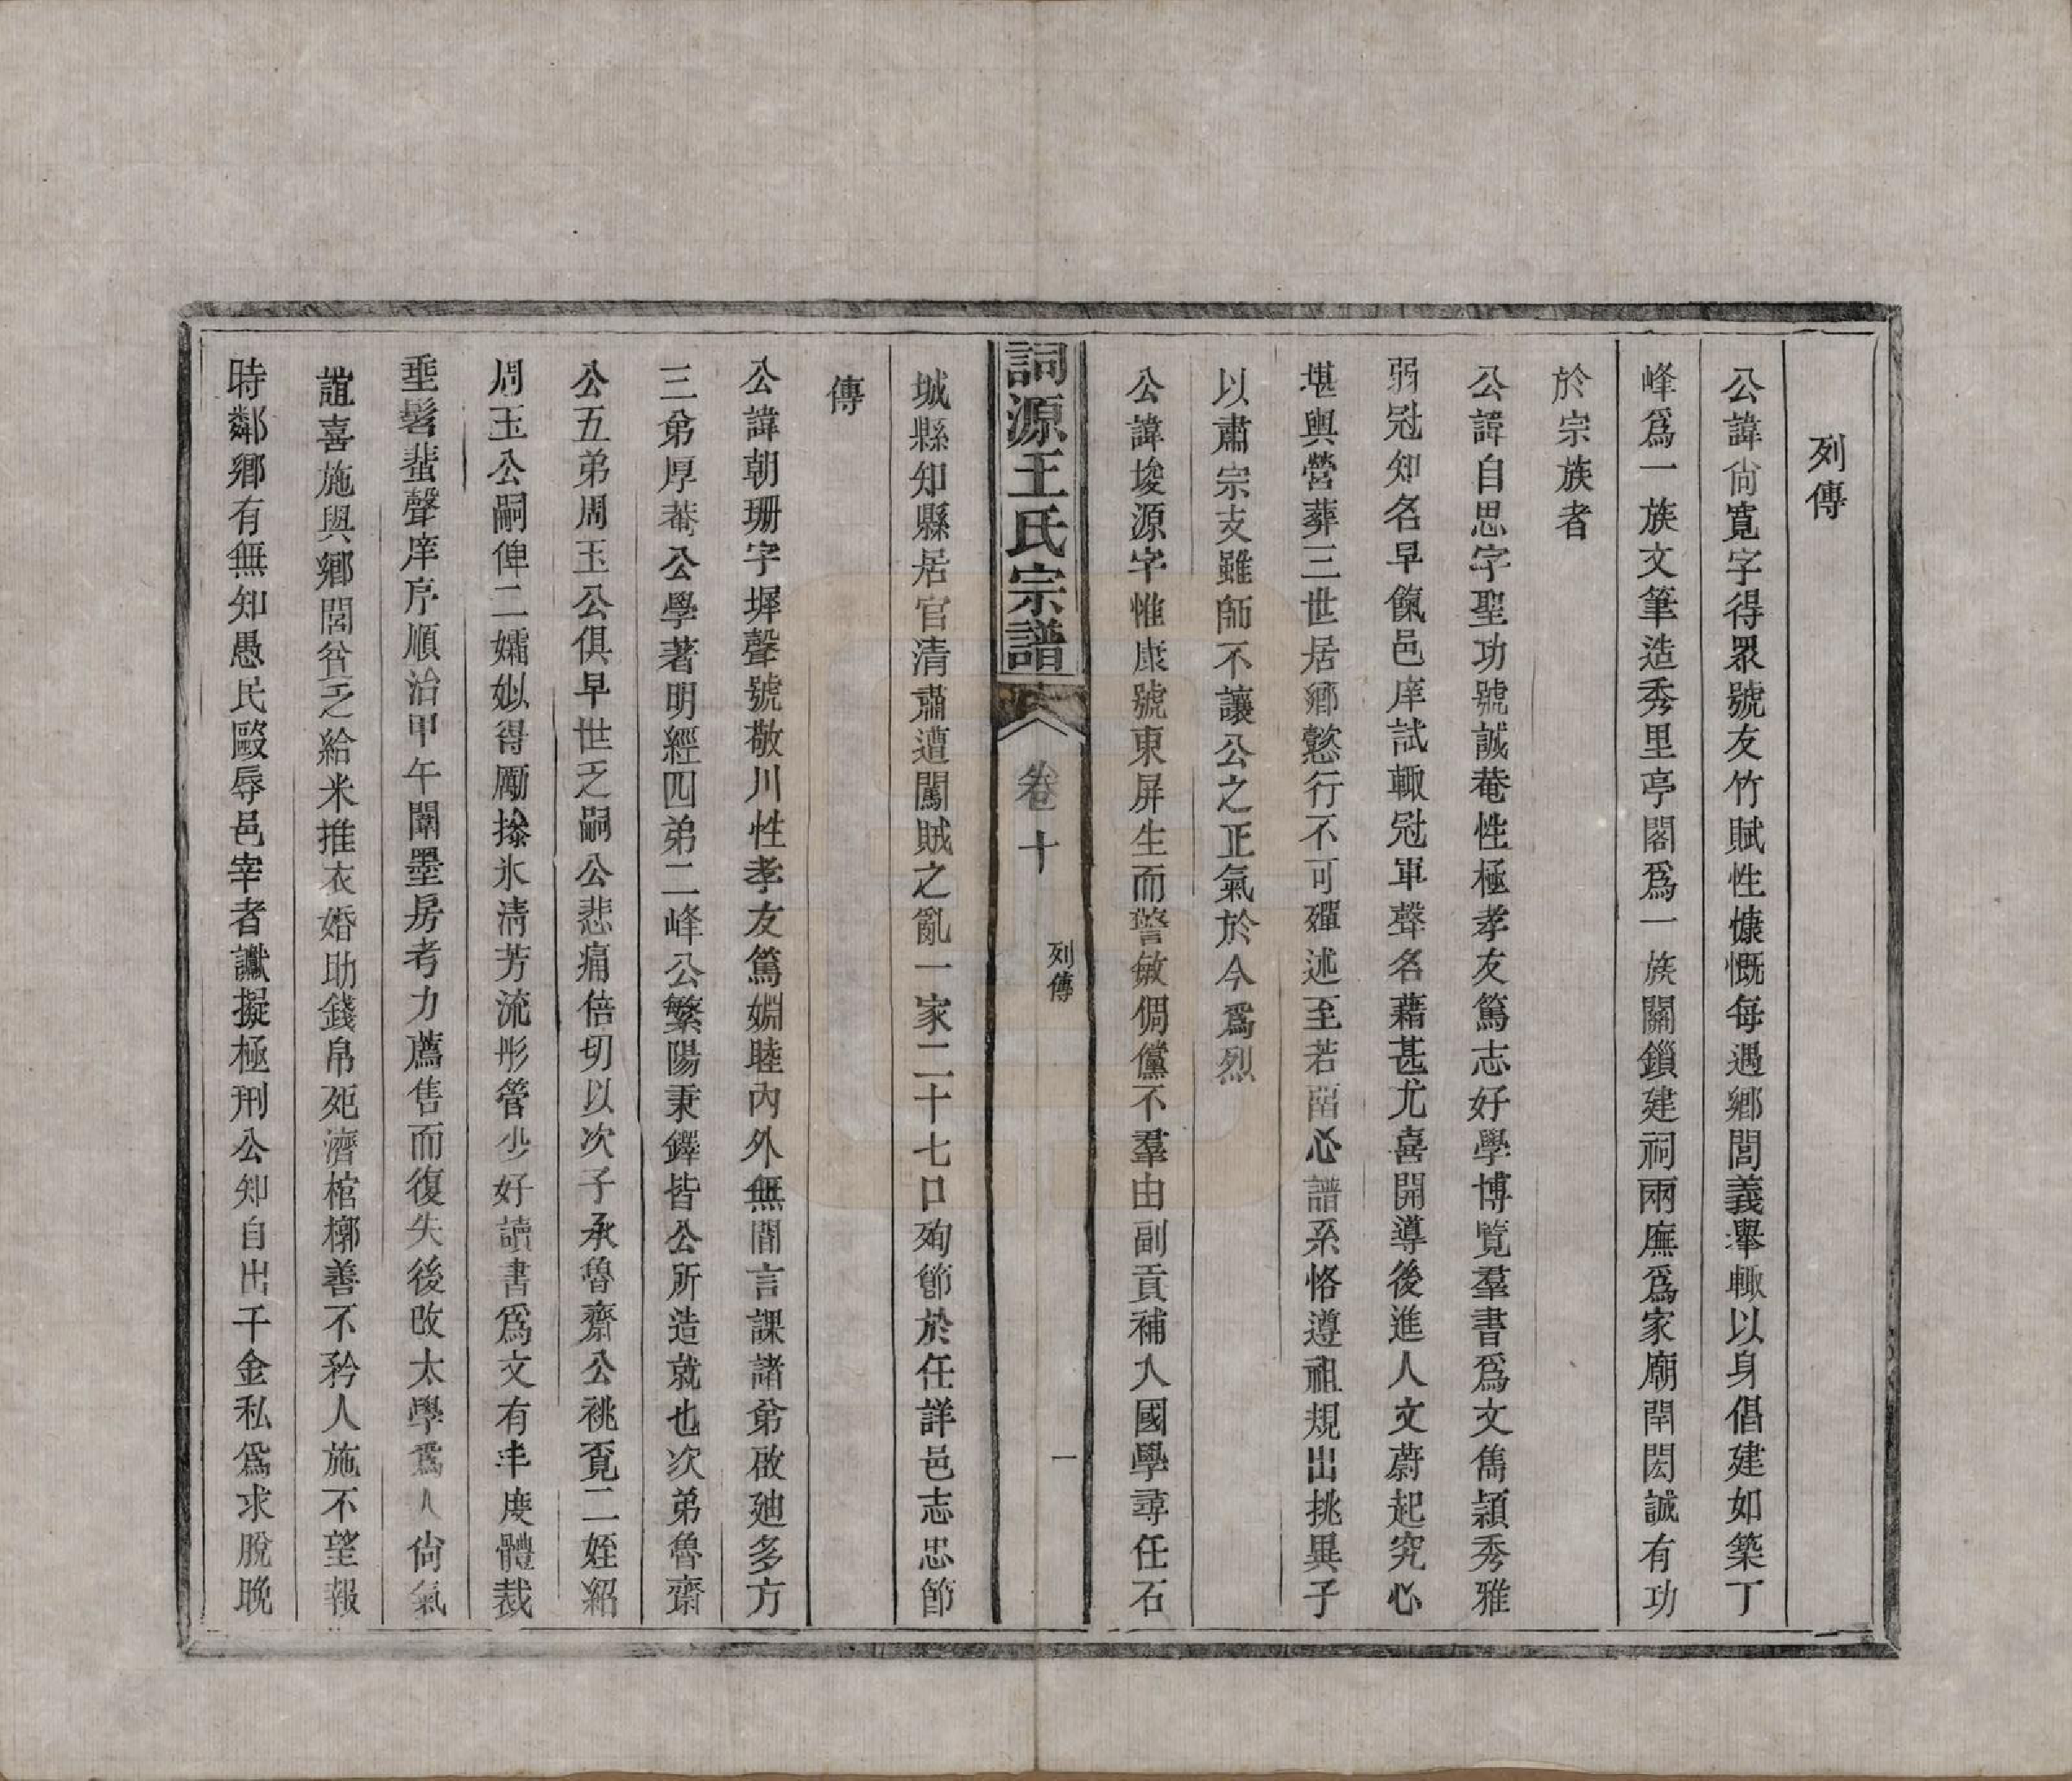 列傳
公諱尙寬字得眾號友竹賦性慷慨每遇鄕閭義舉輙以身倡建如築丁
峰爲一族文筆造秀里亭閣爲一族關鎖建祠兩廡爲家廟閈閎誠有功
於宗族者
公諱自思字聖功號誠菴性極孝友篤志好學博覽羣書爲文雋穎秀雅
弱冠知名早餼邑庠試輙冠軍聲名藉甚尤喜開導後進人文蔚起究心
堪輿營葬三世居鄕懿行不可殫述至若畱心譜系恪遵祖規出挑異子
以肅宗支雖師不讓公之正氣於今爲烈
公諱埈源字惟康號東屏生而警敏倜儻不羣由副貢補入國學尋任石
詞源王氏宗譜
卷十
列傳
一
城縣知縣居官清肅遭闖賊之亂一家二十七口殉節於任詳邑志忠節
傳
公諱朝珊字墀聲號敬川性孝友篤婣睦內外無閒言課諸弟啟廸多方
三弟厚菴公學著明經四弟二峰公繁陽秉鐸皆公所造就也次弟魯齋
公五弟周玉公俱早世乏嗣公悲痛倍切以次子承魯齋公祧覔二姪紹
周玉公嗣俾二孀姒得勵操氷淸芳流彤管少好讀書爲文有丰度體裁
垂髫蜚聲庠序順治甲午闈墨房考力薦售而復失後改太學爲人尙氣
誼喜施與鄕閭貧乏給米推衣婚助錢帛死濟棺槨善不矜人施不望報
時鄰鄕有無知愚民毆辱邑宰者讞擬極刑公知自出千金私爲求脫晚